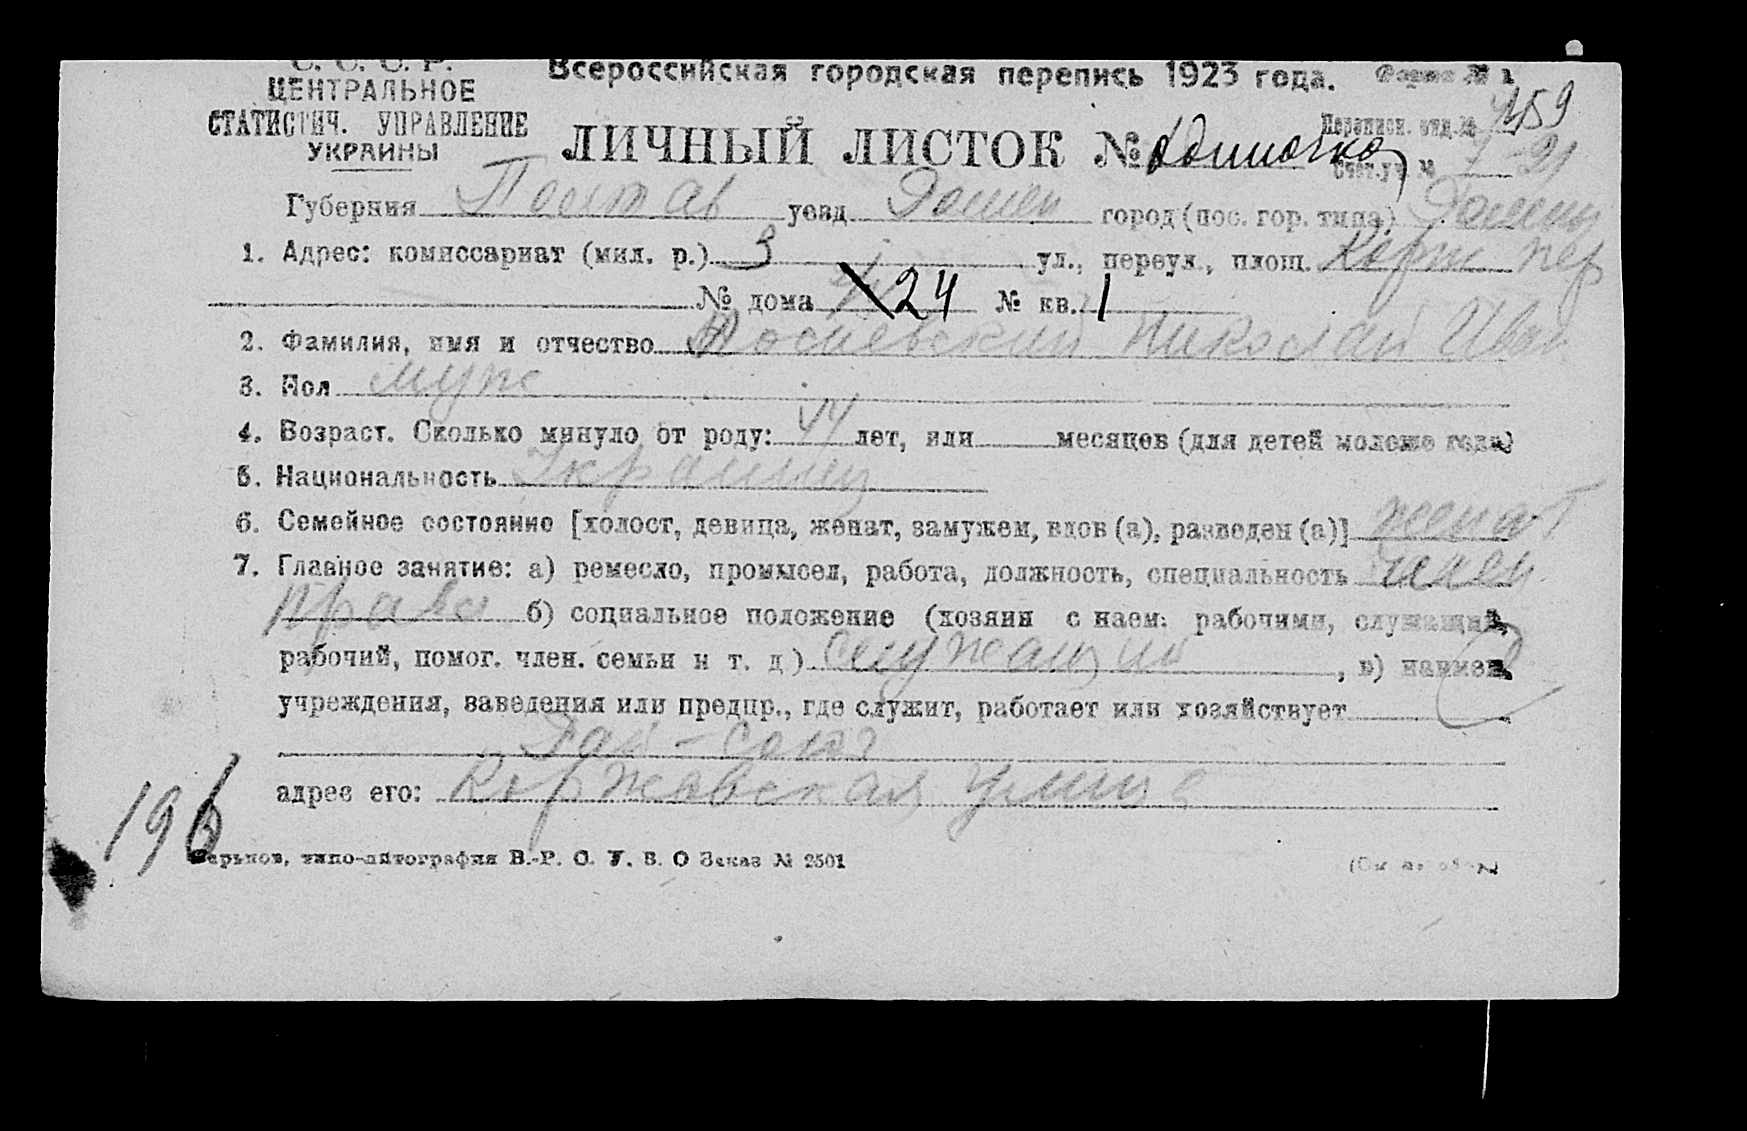 С. С. С. Р.
ЦЕНТРАЛЬНОЕ
СТАТИСТИЧ. УПРАВЛЕНИЕ
УКРАИНЫ
Всероссийская городская перепись 1923 года. Форма № 1
ЛИЧНЫЙ ЛИСТОК № одиночка
Переписн. отд. №
Счет. уч. №
Губерния Полтав уезд Ромен город (пос. гор. типа) Ромны
1. Адрес: комиссариат (мил. р.) 3 ул., переул., площ. Корж пер
№ дома 24 № кв. 1
2. Фамилия, имя и отчество Николай Иван
3. Пол муж
4. Возраст. Сколько минуло от роду: 44 лет, или месяцев (для детей моложе года)
5. Национальность Украинец
6. Семейное состояние [холост, девица, женат, замужем, вдов (а), разведен (а)] женат
7. Главное занятие: а) ремесло, промысел, работа, должность, специальность член
права б) социальное положение (хозяин с наем. рабочими, служащий,
рабочий, помог. член. семьи и т. д) служащий, в) наимен.
учреждения, заведения или предпр., где служит, работает или хозяйствует
Рай-союз
адрес его: Коржевская улица
196
Харьков, типо-литография В.-Р. О. У. В. О Заказ № 2501